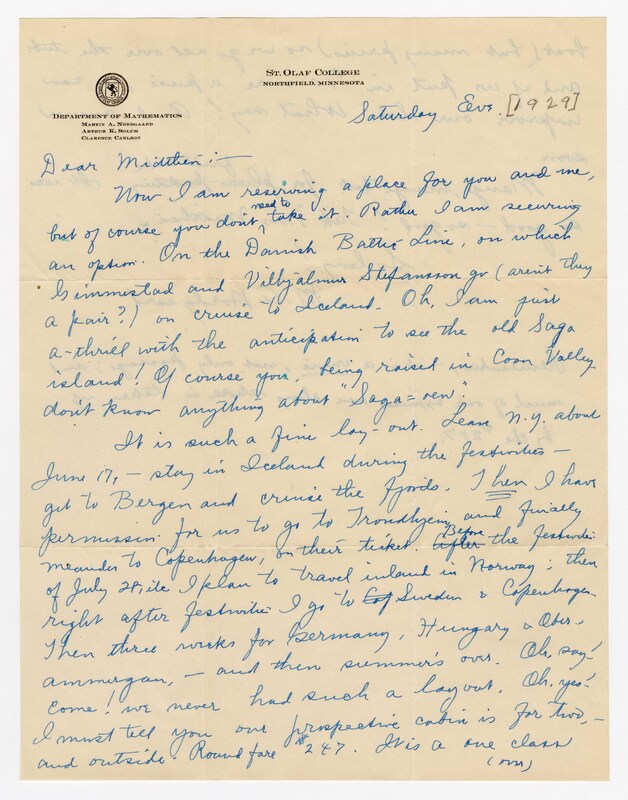 ST. OLAF COLLEGE
NORTHFIELD, MINNESOTA
DEPARTMENT OF MATHEMATICS
MARTIN A. NORDGAARD
ARTHUR K. SOLUM
CLARENCE CARLSON
Saturday Eve. [1929]
Dear Midttien:—
Now I am reserving a place for you and me,
but of course you don't need to take it. Rather I am securing
an option. On the Danish Baltic Line, on which
Gimmestad and Vilhjalmur Stefansson go (aren't they
a pair?) on cruise to Iceland. Oh, I am just
a-thrill with the anticipation to see the old Saga
island! Of course you, being raised in Coon Valley
don't know anything about "Saga=øen".
It is such a fine lay-out. Leave N.Y. about
June 17, — stay in Iceland during the festivities —
get to Bergen and cruise the fjords. Then I have
permission for us to go to Trondhjem and finally
meander to Copenhagen, on their ticket. After Before the festivities
of July 28, etc I plan to travel inland in Norway; then
right after festivities I go to Sweden & Copenhagen
Then three weeks for Germany, Hungary & Ober-
ammergau, — and then summer's over. Oh, say!
come! we never had such a layout. Oh, yes!
I must tell you our prospective cabin is for two, —
and outside. Round fare $247. It is a one class
(over)